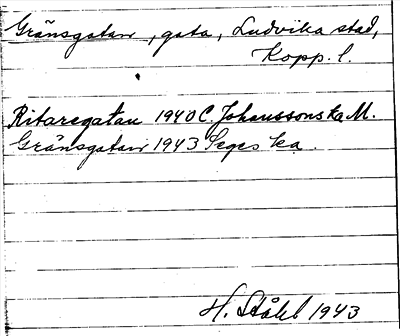 Gränsgatan, gata, Ludvika stad,
Kopp. l.
Ritaregatan 1940 C. Johanssonska M.
Gränsgatan 1943 Seges ka.
H. Ståhl 1943